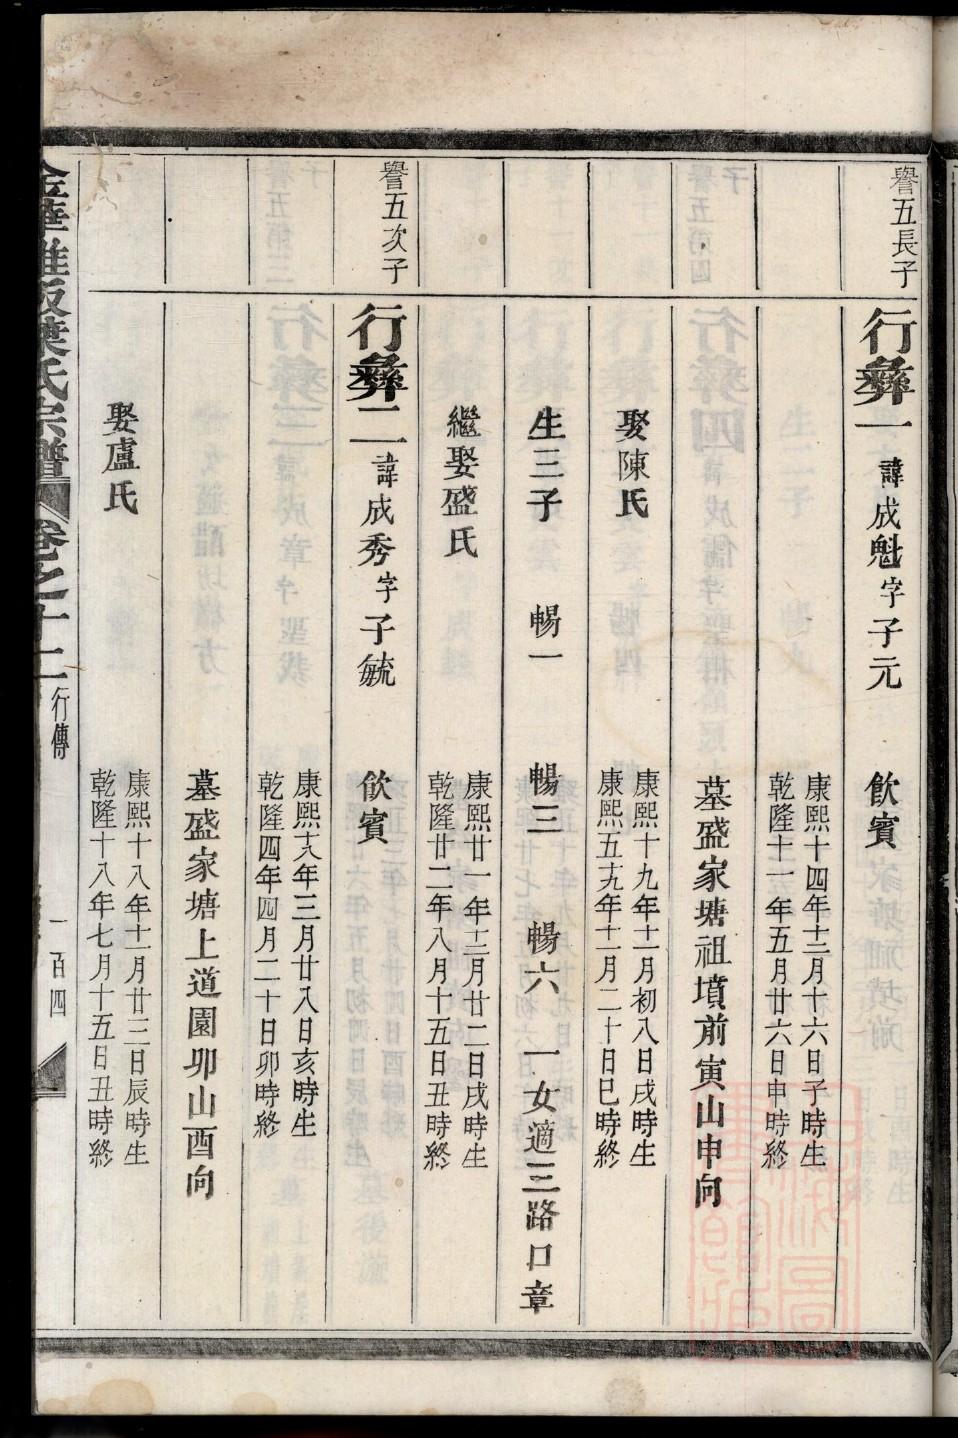 譽五長子
行彝一 諱成魁字子元 飲賓
康熙十四年十二月十六日子時生
乾隆十一年五月廿六日申時終
墓盛家塘祖墳前寅山申向
娶陳氏
康熙十九年十一月初八日戌時生
康熙五十九年十一月二十日巳時終
生三子 暢一 暢三 暢六 一女適三路口章
繼娶盛氏
康熙廿一年十二月廿二日戌時生
乾隆廿二年八月十五日丑時終
譽五次子
行彝二 諱成秀字子毓 飲賓
康熙十八年三月廿八日亥時生
乾隆四年四月二十日卯時終
墓盛家塘上道園卯山酉向
娶盧氏
康熙十八年十一月廿三日辰時生
乾隆十八年七月十五日丑時終
金華 阪葉氏宗譜 卷之十二 行傳 一百四